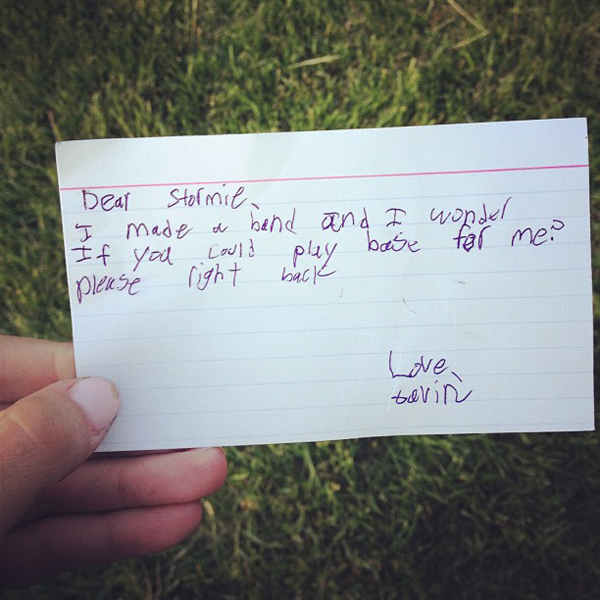 Dear Stormie,
I made a band and I wonder
If you could play base for me?
please right back
Love,
Gavin